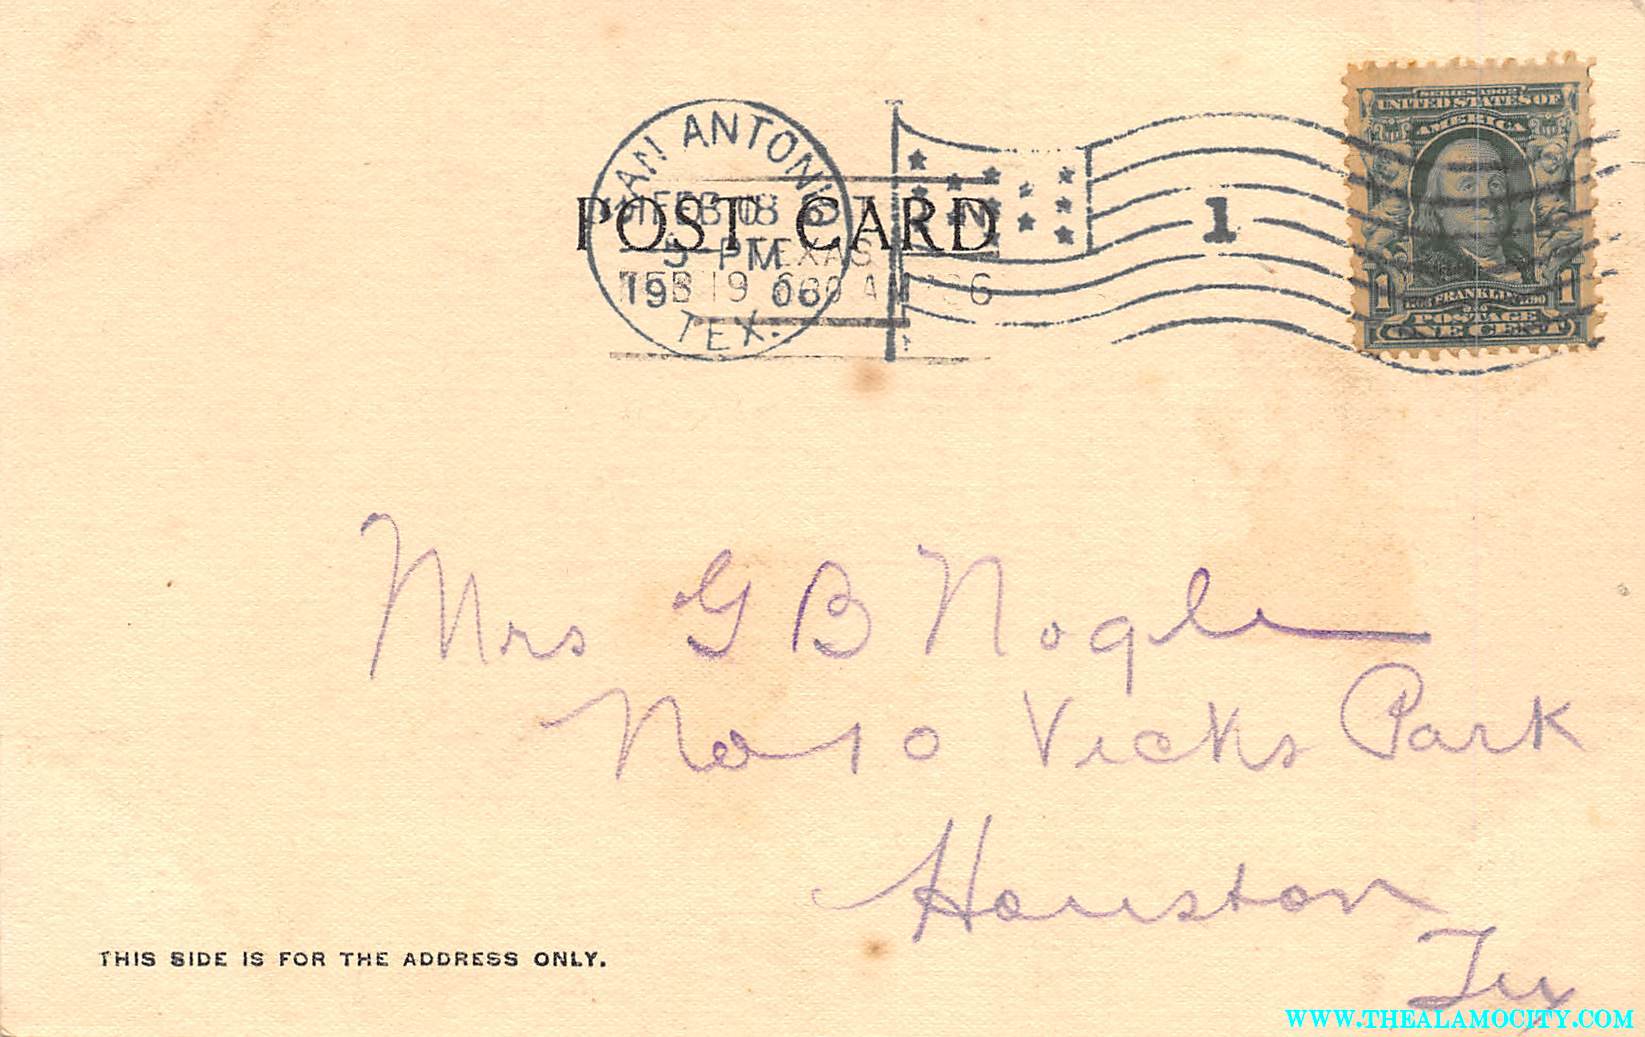 SERIES 1902
UNITED STATES OF
AMERICA
SAN ANTONIO
POST CARD
FEB 18
5 - PM
TEXAS
1906
FEB 19 6 00 AM '06
TEX.
1
1 FRANKLIN 1
POSTAGE
ONE CENT
Mrs G B Nogle
No 10 Vicks Park
Houston
Tex
THIS SIDE IS FOR THE ADDRESS ONLY.
WWW.THEALAMOCITY.COM